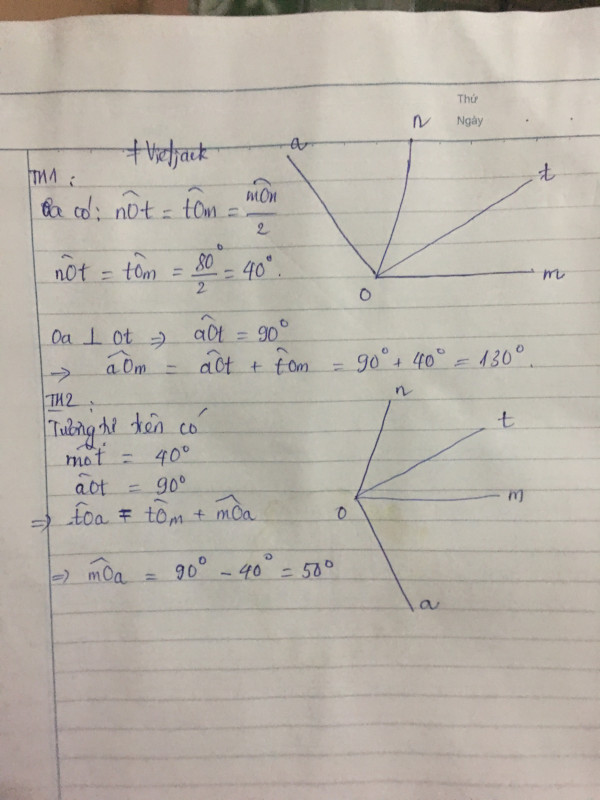 Thứ
Ngày
+ Vietjack
TH1 :
Ta có: nÔt = tÔm = mÔn/2
nÔt = tÔm = 80°/2 = 40°.
Oa ⊥ Ot ⇒ aÔt = 90°
→ aÔm = aÔt + tÔm = 90° + 40° = 130°.
TH2 :
Tương tự trên có
mÔt = 40°
aÔt = 90°
⇒ tÔa = tÔm + mÔa
⇒ mÔa = 90° - 40° = 50°
a
n
t
m
O
n
t
m
O
a